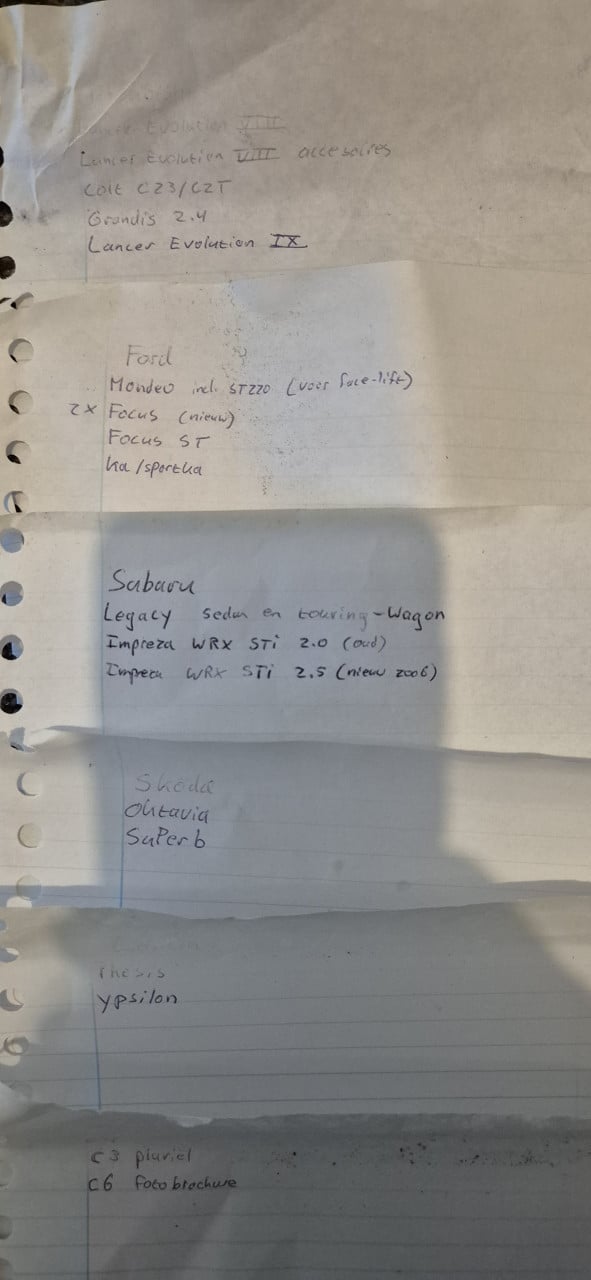 Evolution VIII
Lancer Evolution VIII accesoires
Colt CZ3/CZT
Grandis 2.4
Lancer Evolution IX
Ford
Mondeo incl. ST220 (voor face-lift)
2x Focus (nieuw)
Focus ST
ka/sportka
Subaru
Legacy sedan en touring-Wagon
Impreza WRX STi 2.0 (oud)
Impreza WRX STi 2.5 (nieuw 2006)
Skoda
Oktavia
SuPerb
Thesis
ypsilon
C3 pluriel
C6 foto brochure